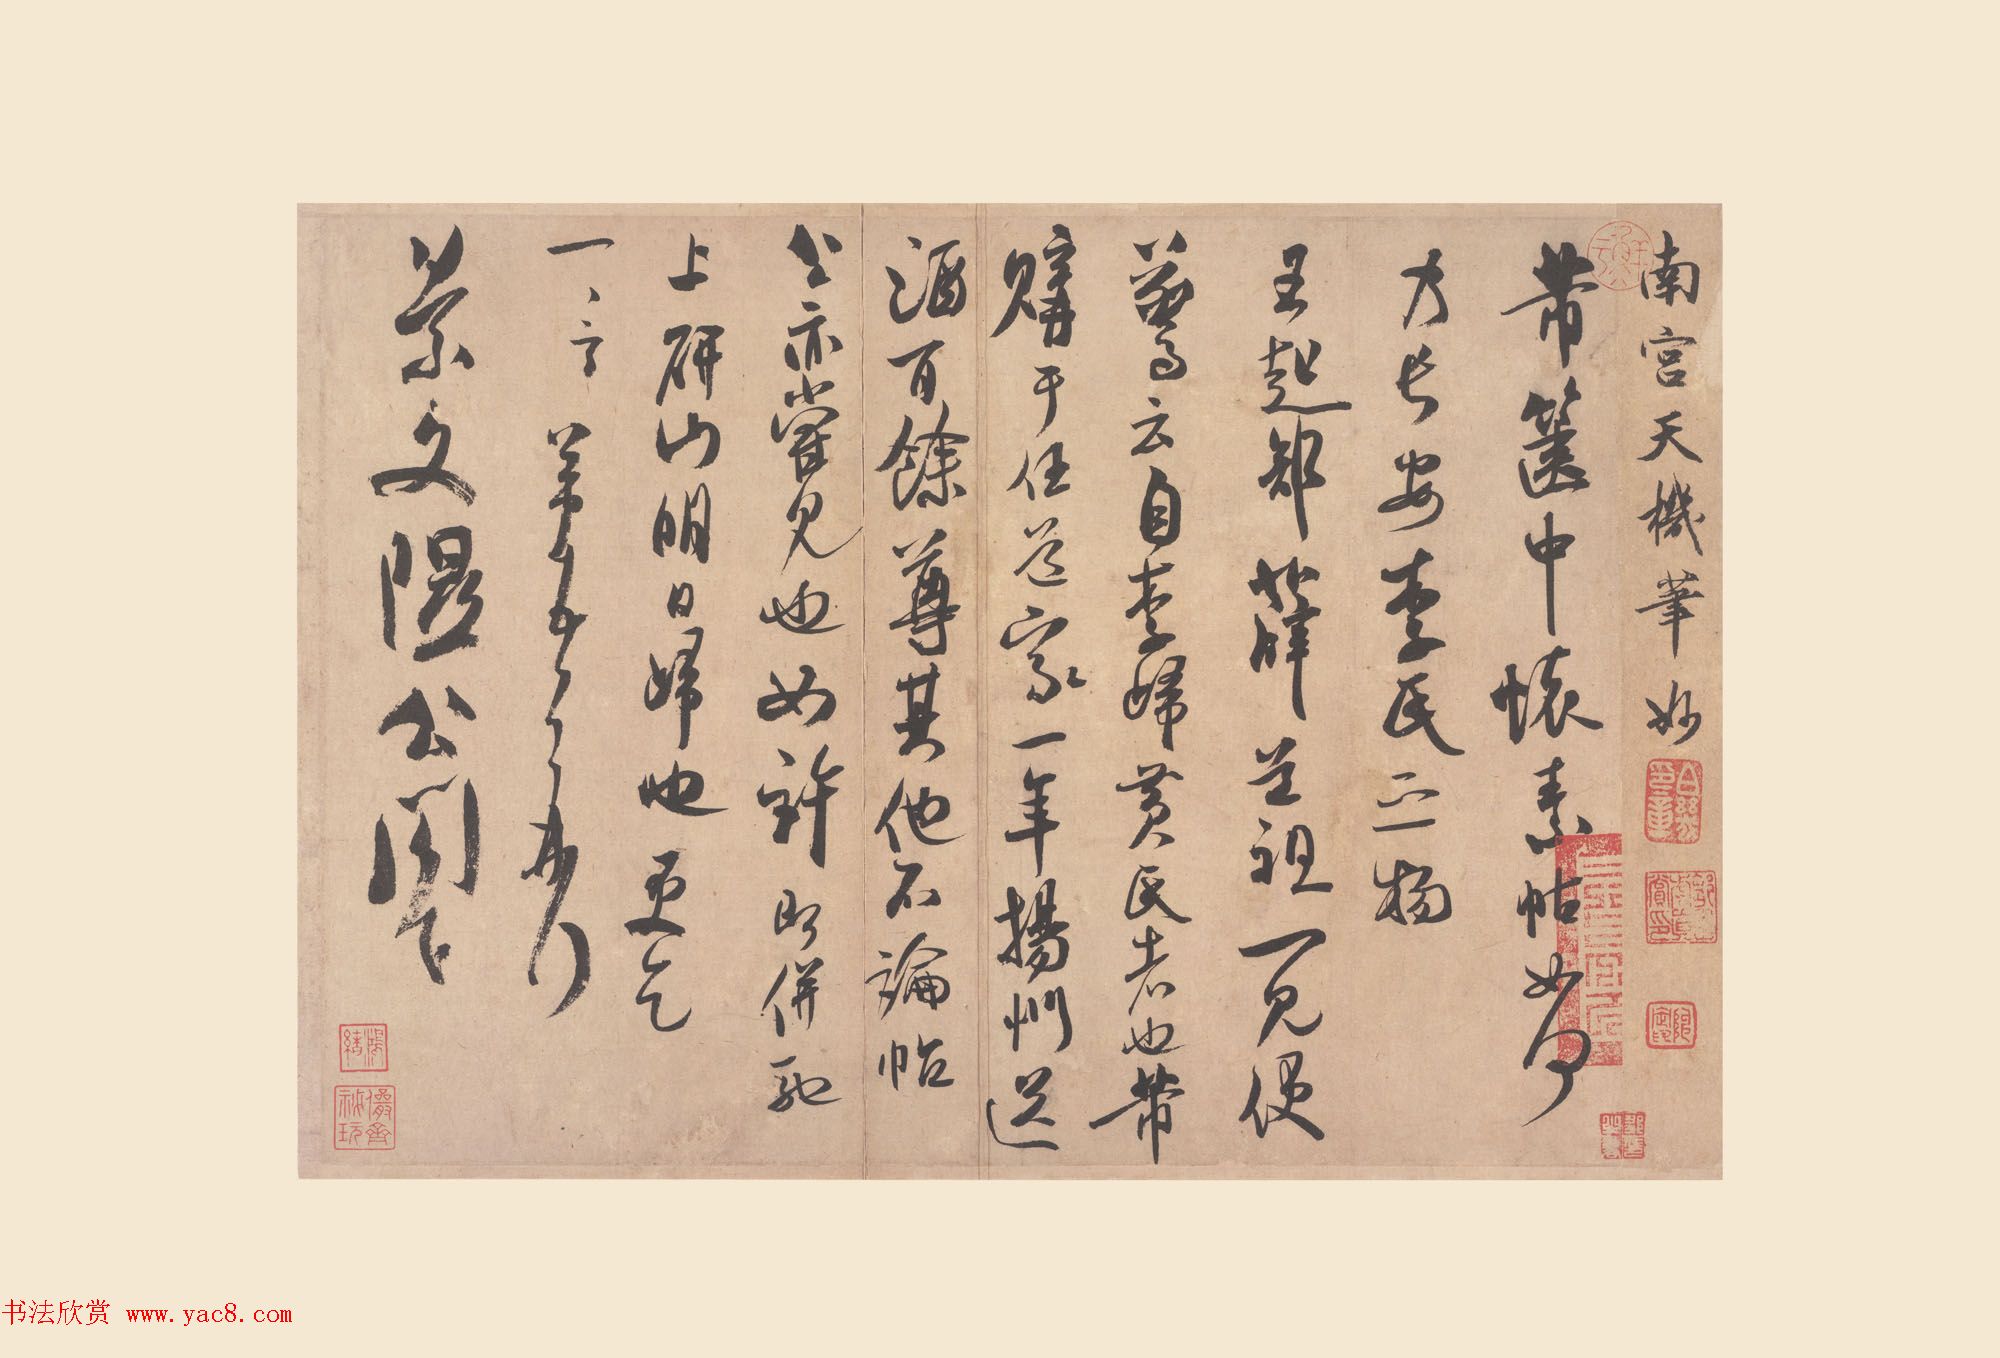 南宮天機筆妙
芾篋中懷素帖如何
乃長安李氏之物
王起郎薛道祖一見便
驚云自李歸黃氏者也芾
購于任道家一年揚州送
酒百餘尊其他不論帖
公亦嘗見也如許即併馳
上研山明日歸也更乞
一言 芾頓首再拜
景文隰公閣下
书法欣赏 www.yac8.com